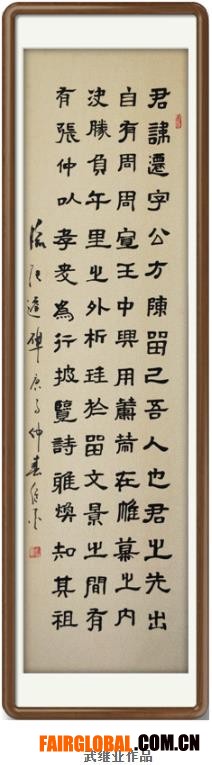 君諱遷字公方陳留己吾人也君之先出
自有周周宣王中興用籌策在帷幕之內
決勝負千里之外析珪於留文景之間有
有張仲以孝友為行披覽詩雅煥知其祖
临张遷碑庚子仲春
FAIRGLOBAL.COM.CN
武继业作品